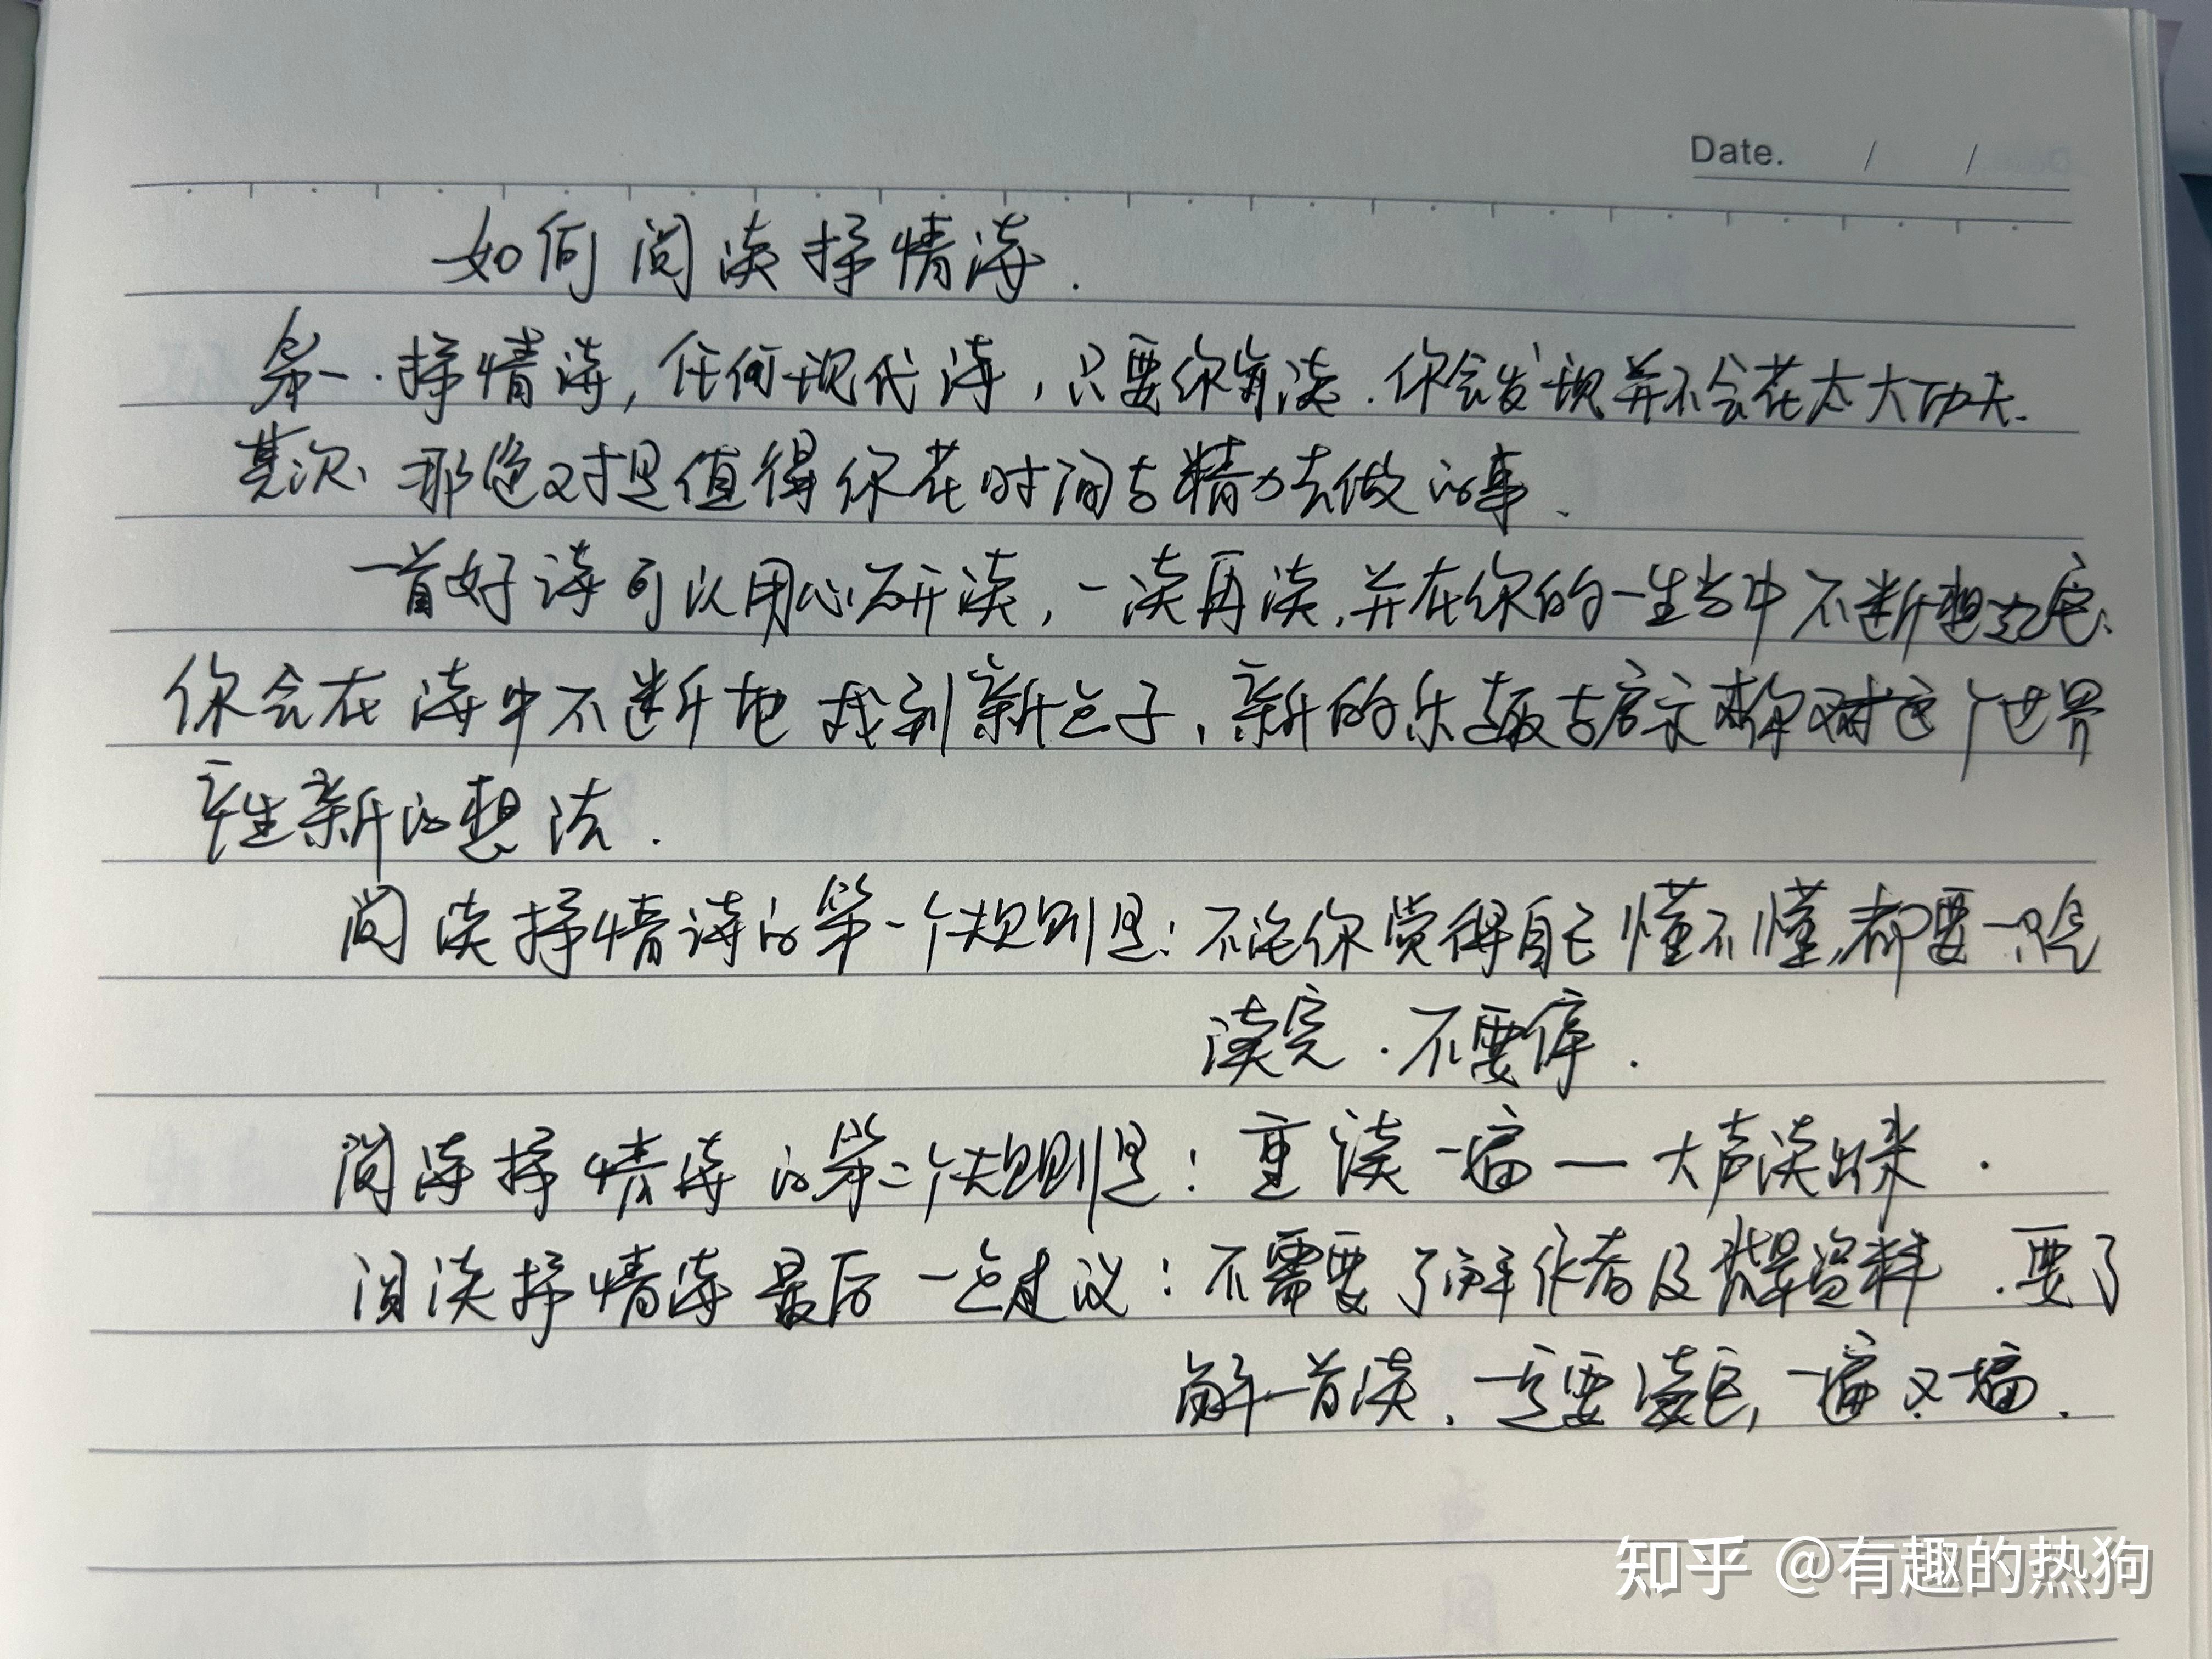 Date. / /
如何阅读抒情诗.
第一.抒情诗,任何现代诗,只要你肯读.你会发现并不会花太大功夫.
其次、那绝对是值得你花时间与精力去做的事.
一首好诗可以用心研读,一读再读,并在你的一生当中不断想起它、
你会在诗中不断地找到新点子,新的乐趣与启示 对这个世界
产生新的想法.
阅读抒情诗的第一个规则是:不论你觉得自己懂不懂,都要一口气
读完.不要停.
阅读抒情诗的第二个规则是:重读一遍—大声读出来.
阅读抒情诗最后一点建议:不需要了解作者及背景资料.要了
解一首读、一定要读它,一遍又一遍.
知乎 @有趣的热狗